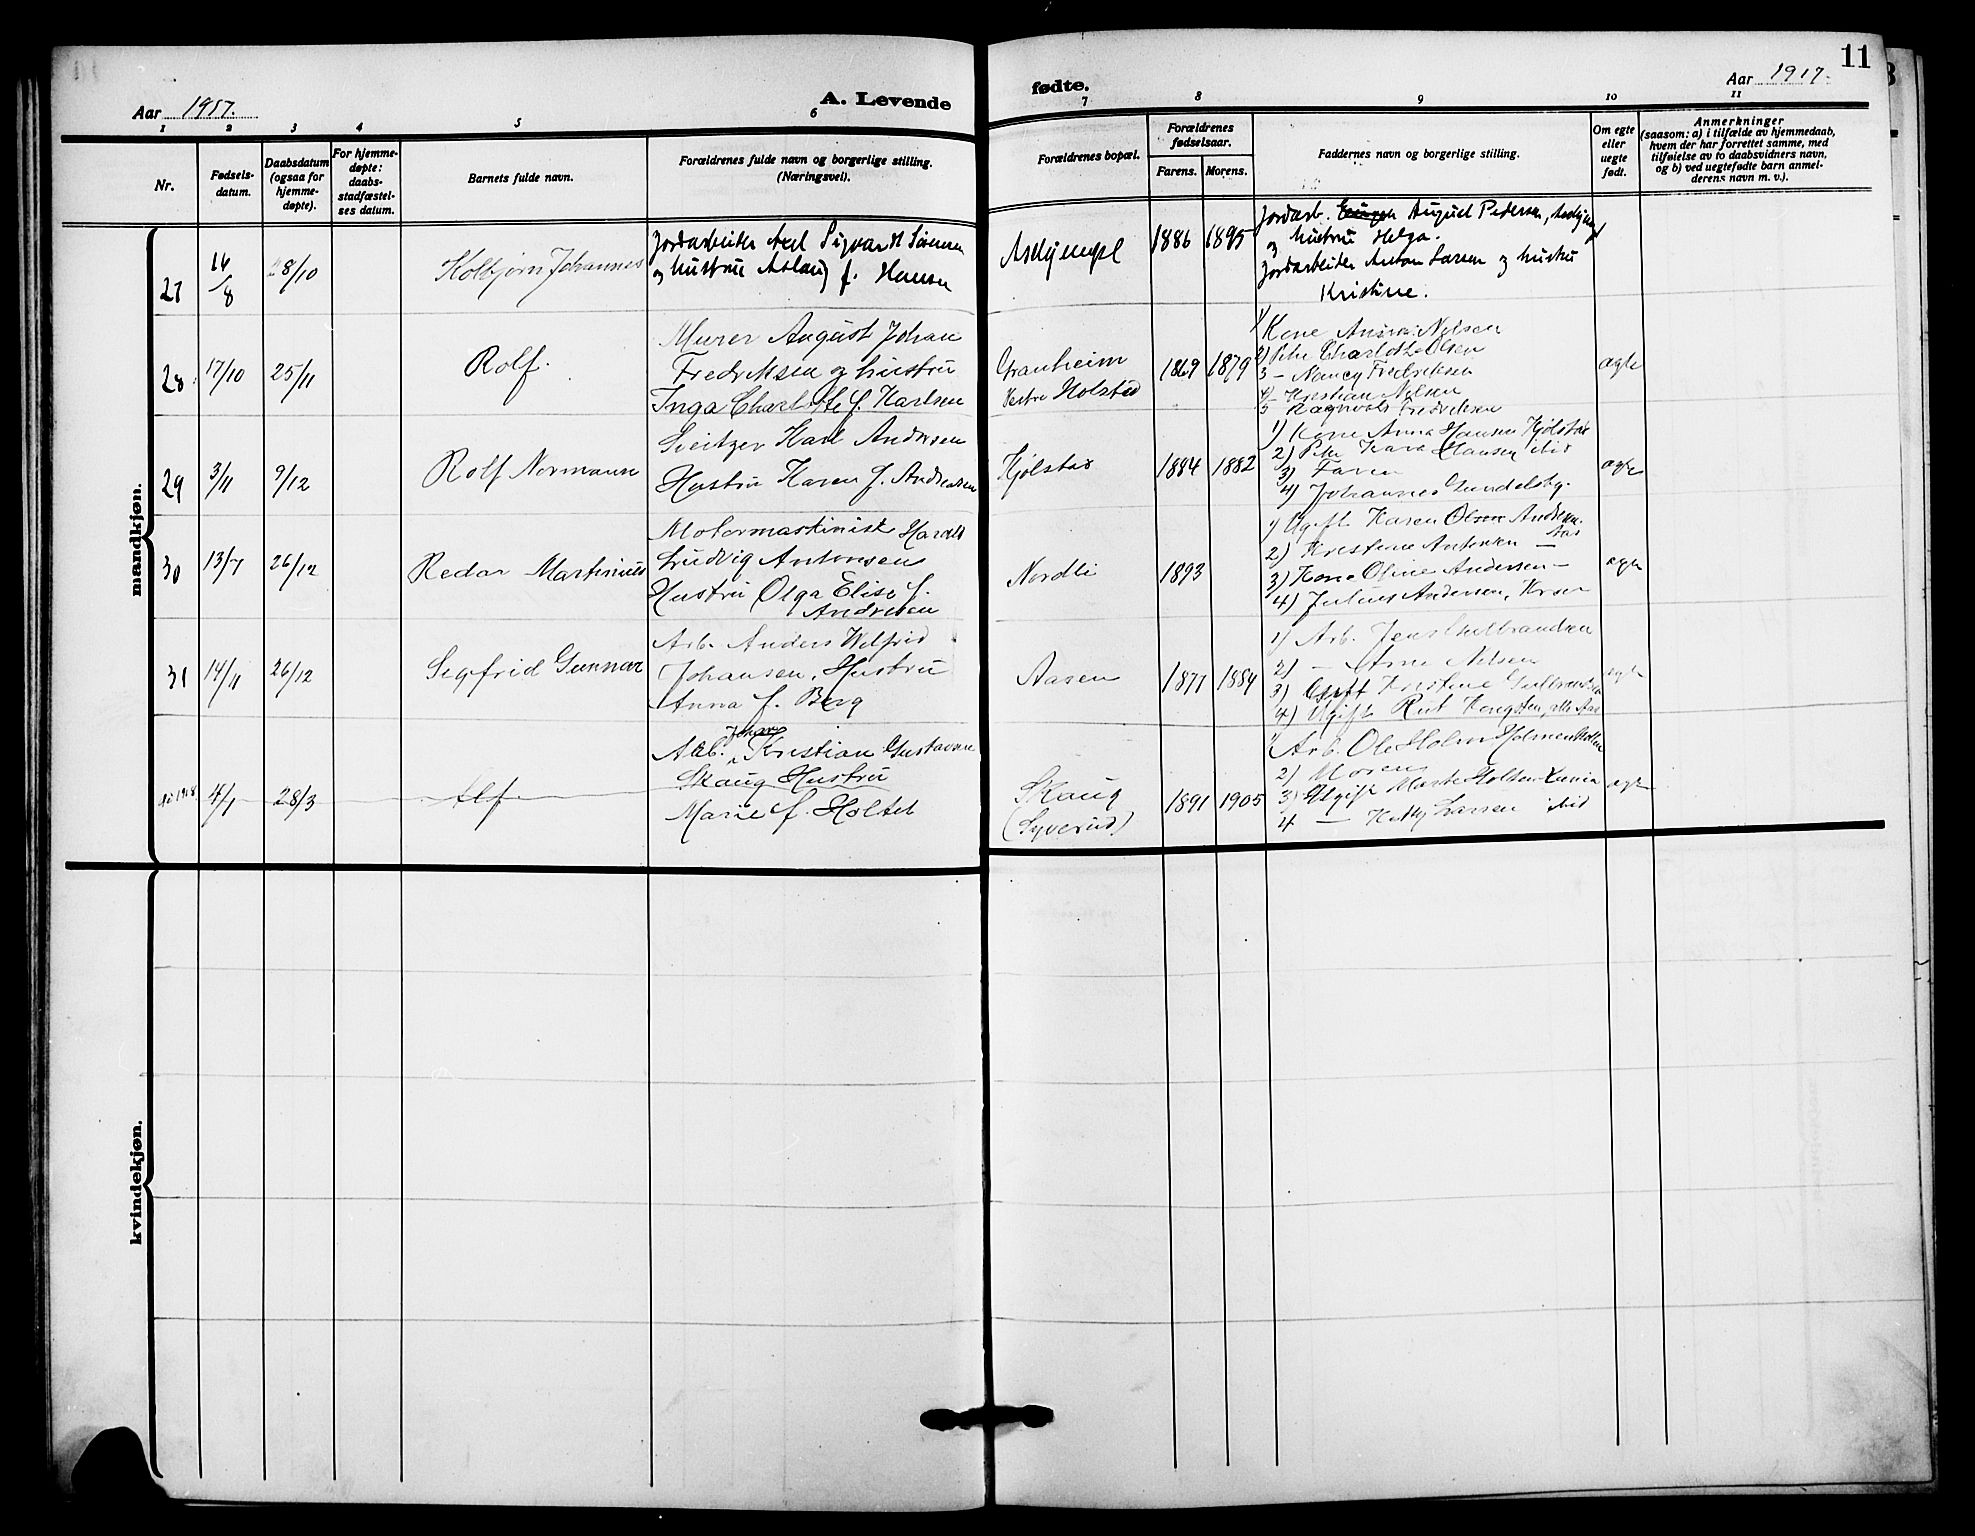 Aar 1917.
A. Levende
fødte.
Aar 1917.
11
1 2 3 4 5 6 7 8 9 10 11
Nr.
Fødsels-
datum.
Daabsdatum
(ogsaa for
hjemme-
døpte).
For hjemme-
døpte:
daabs-
stadfæstel-
ses datum.
Barnets fulde navn.
Forældrenes fulde navn og borgerlige stilling.
(Næringsvei).
Forældrenes bopæl.
Forældrenes
fødselsaar.
Farens. Morens.
Faddernes navn og borgerlige stilling.
Om egte
eller
uegte
født.
Anmerkninger
(saasom: a) i tilfælde av hjemmedaab,
hvem der har forrettet samme, med
tilføielse av to daabsvidners navn,
og b) ved uegtefødte barn anmel-
derens navn m. v.).
mandkjøn.
27
16/8
28/10
Kolbjørn Johannes
Jordarbeider Axel Sigvardt Sørensen
og hustru Aslaug f. Hansen
1886 1895
Jordarb. August Pedersen,
og hustru Helga.
Jordarbeider Anton Larsen og hustru
Kristine.
28
17/10
25/11
Rolf.
Murer August Johan
Fredriksen og hustru
Inga Charlotte f. Karlsen
Granheim
Vestre Holstad
1869 1879
1) Kone Nilsen
2) Pike Charlotte Olsen
3 - Nancy Fredriksen
4) Kristian Nilsen
5 Ragnvald Fredriksen
ægte
29
3/11
9/12
Rolf Normann
Sveitzer Karl Andersen
Hustru Karen f. Andreassen
Kjølstad
1884 1882
1) Kone Anna Hansen Kjølstad
2) Pike Kara Hansen ibid
3) Faren
4) Johannes Gundelsby.
ægte
30
13/7
26/12
Redar Martinius
Motormaskinist Harald
Ludvig Antonsen
Hustru Olga Elise f.
Andresen
Nordli
1893
1) Ugift Karen Olsen Andersen.
Aas
2) Kristine Antonsen —
3) Kone Oline Andersen —
4) Julius Andersen, Kroer
ægte
31
14/11
26/12
Segfrid Gunnar
Arb. Anders Wilfrid
Johansen, Hustru
Anna f. Berg
Aasen
1877 1884
1) Arb. Jens Gulbrandsen
2) — Arne Nilsen
3) Kristine Gulbrandsen
4) Ugift Rut Kongsten, alle Aas
ægte
1918
4/1
28/3
Alf
Johan
Arb. Kristian Gustavsen
Skaug Hustru
Marie f. Holtet
Skaug
(Syverud)
1891 1905
1) Arb. Ole Holm
2) Moren
3) Ugift Marta Holten
4 — Larsen ibid
ægte
kvindekjøn.